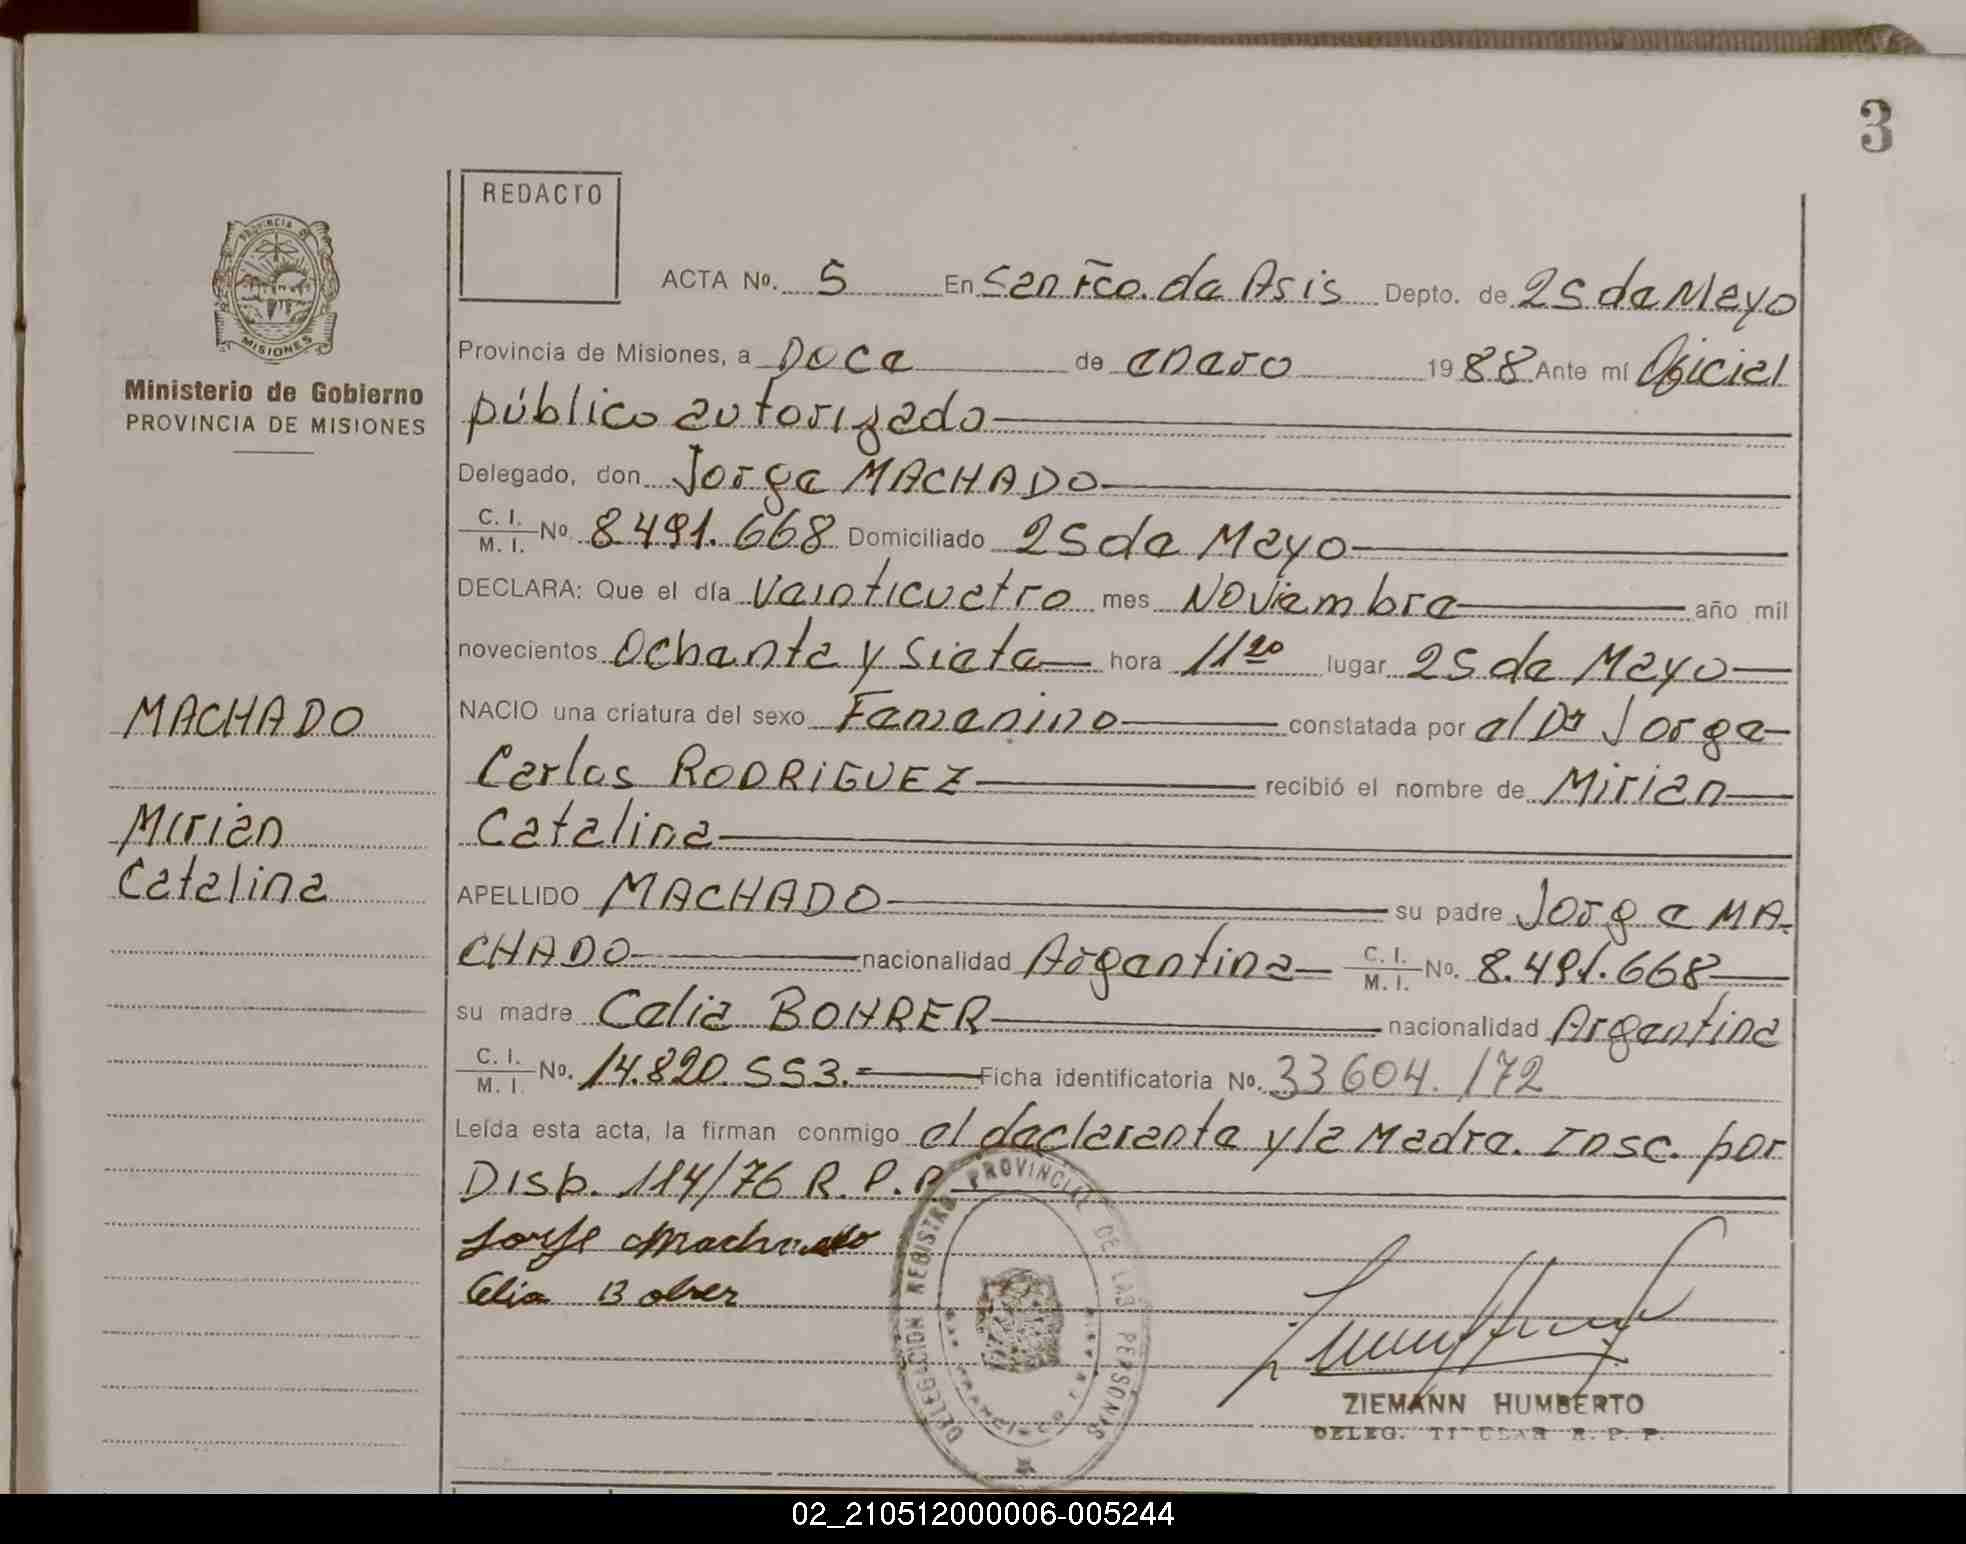 3
REDACTO
ACTA Nº. 5 En San Fco. de Asis Depto. de 25 de Mayo
Provincia de Misiones, a Doce de enero 1988 Ante mí Oficial
público autorizado
Delegado, don Jorge MACHADO
C. I. / M. I. Nº 8491.668 Domiciliado 25 de Mayo
DECLARA: Que el día veinticuatro mes Noviembre año mil
novecientos Ochenta y siete hora 11 20 lugar 25 de Mayo
NACIO una criatura del sexo Femenino constatada por el Dr Jorge
Carlos RODRIGUEZ recibió el nombre de Mirian
Catalina
APELLIDO MACHADO su padre Jorge MA-
CHADO nacionalidad Argentina C. I. / M. I. Nº. 8.491.668
su madre Celia BOHRER nacionalidad Argentina
C. I. / M. I. Nº. 14.820.553.- Ficha identificatoria Nº. 33604./72
Leída esta acta, la firman conmigo el declarante y la Madre. Insc. por
Disp. 114/76 R. P. P.
Jorge Machado
Celia Bohrer
PROVINCIA DE
MISIONES
Ministerio de Gobierno
PROVINCIA DE MISIONES
MACHADO
Mirian
Catalina
DELEGACION REGISTRO PROVINCIAL DE LAS PERSONAS
ZIEMANN HUMBERTO
DELEG. TITULAR R. P. P.
02_210512000006-005244